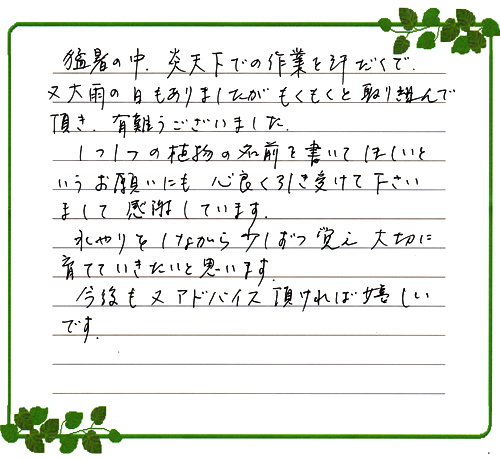 猛暑の中、炎天下での作業を汗だくで、
又大雨の日もありましたがもくもくと取り組んで
頂き、有難うございました。
1つ1つの植物の名前を書いてほしいと
いうお願いにも心良く引き受けて下さい
まして感謝しています。
水やりをしながら少しずつ覚え大切に
育てていきたいと思います。
今後も又アドバイス頂ければ嬉しい
です。